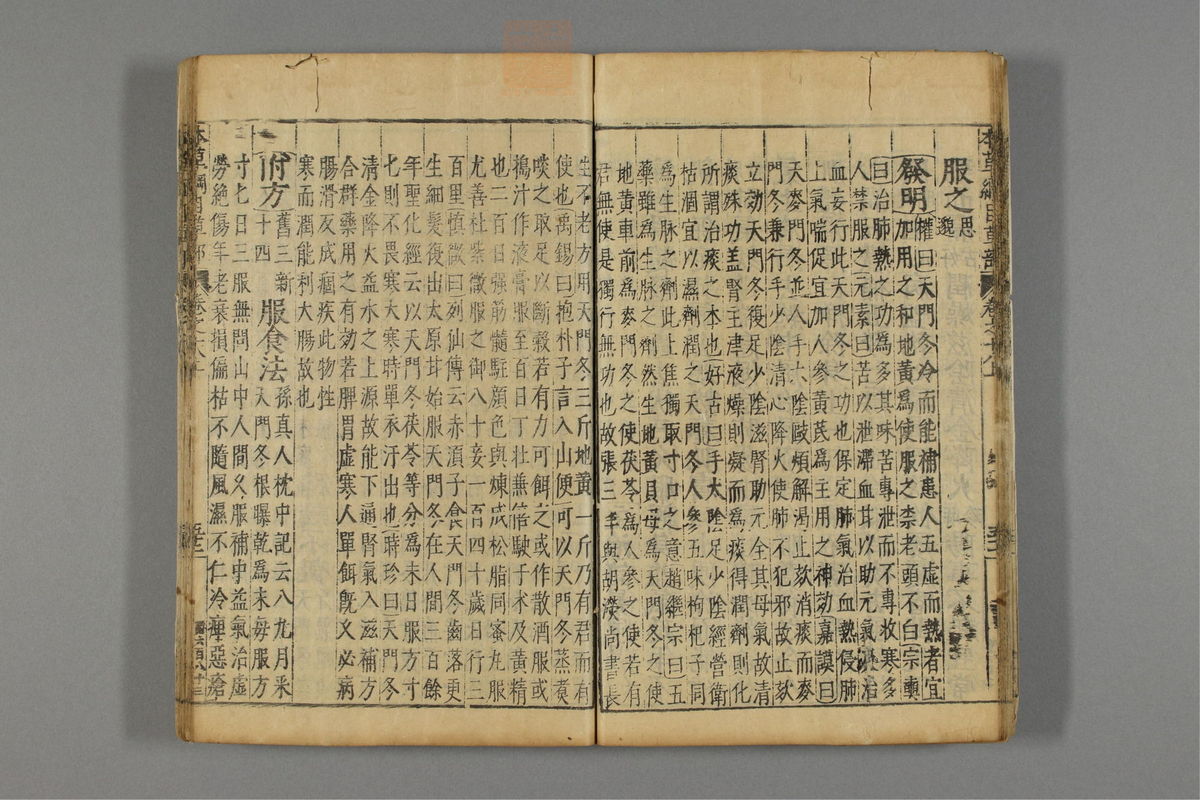 服之思邈
發明權曰天門冬冷而能補患人五虛而熱者宜
加用之和地黃爲使服之柰老頭不白宗奭
曰治肺熱之功爲多其味苦專泄而不專收寒多
人禁服之元素曰苦以泄滯血甘以助元氣及治
血妄行此天門冬之功也保定肺氣治血熱侵肺
上氣喘促宜加人參黃芪爲主用之神効嘉謨曰
天麥門冬並入手太陰歐煩解渴止欬消痰而麥
門冬兼行手少陰清心降火使肺不犯邪故止欬
立効天門冬復足少陰滋腎助元全其母氣故清
痰殊功盖腎主津液燥則凝而爲痰得潤劑則化
所謂治痰之本也好古曰手太陰足少陰經營衛
枯涸宜以濕劑潤之天門冬人參五味枸杞子同
爲生脉之劑此上焦獨取寸口之意趙繼宗曰五
藥雖爲生脉之劑然生地黃貝母爲天門冬之使
地黃車前爲麥門冬之使茯苓爲人參之使若有
君無使是獨行無功也故張三丰與胡濙尚書長
生不老方用天門冬三斤地黃一斤乃有君而有
使也禹錫曰抱朴子言入山便可以天門冬蒸煮
啖之取足以斷穀若有力可餌之或作散酒服或
搗汁作液膏服至百日丁壯兼倍駛于术及黃精
也二百日強筋髓駐顏色與煉成松脂同蜜丸服
尤善杜紫微服之御八十妾一百四十歲日行三
百里慎微曰列仙傳云赤湏子食天門冬齒落更
生細髮復出太原甘始服天門冬在人間三百餘
年聖化經云以天門冬茯苓等分爲末日服方寸
七則不畏寒大寒時單衣汗出也時珍曰天門冬
清金降火益水之上源故能下通腎氣入滋補方
合群藥用之有効若脾胃虛寒人單餌旣久必病
腸滑反成痼疾此物性
寒而潤能利大腸故也
附方舊三新十四服食法孫眞人枕中記云八九月采天門冬根曝乾爲末每服方
寸七日三服無問山中人間久服補中益氣治虛
勞絶傷年老衰損偏枯不隨風濕不仁冷痺惡瘡